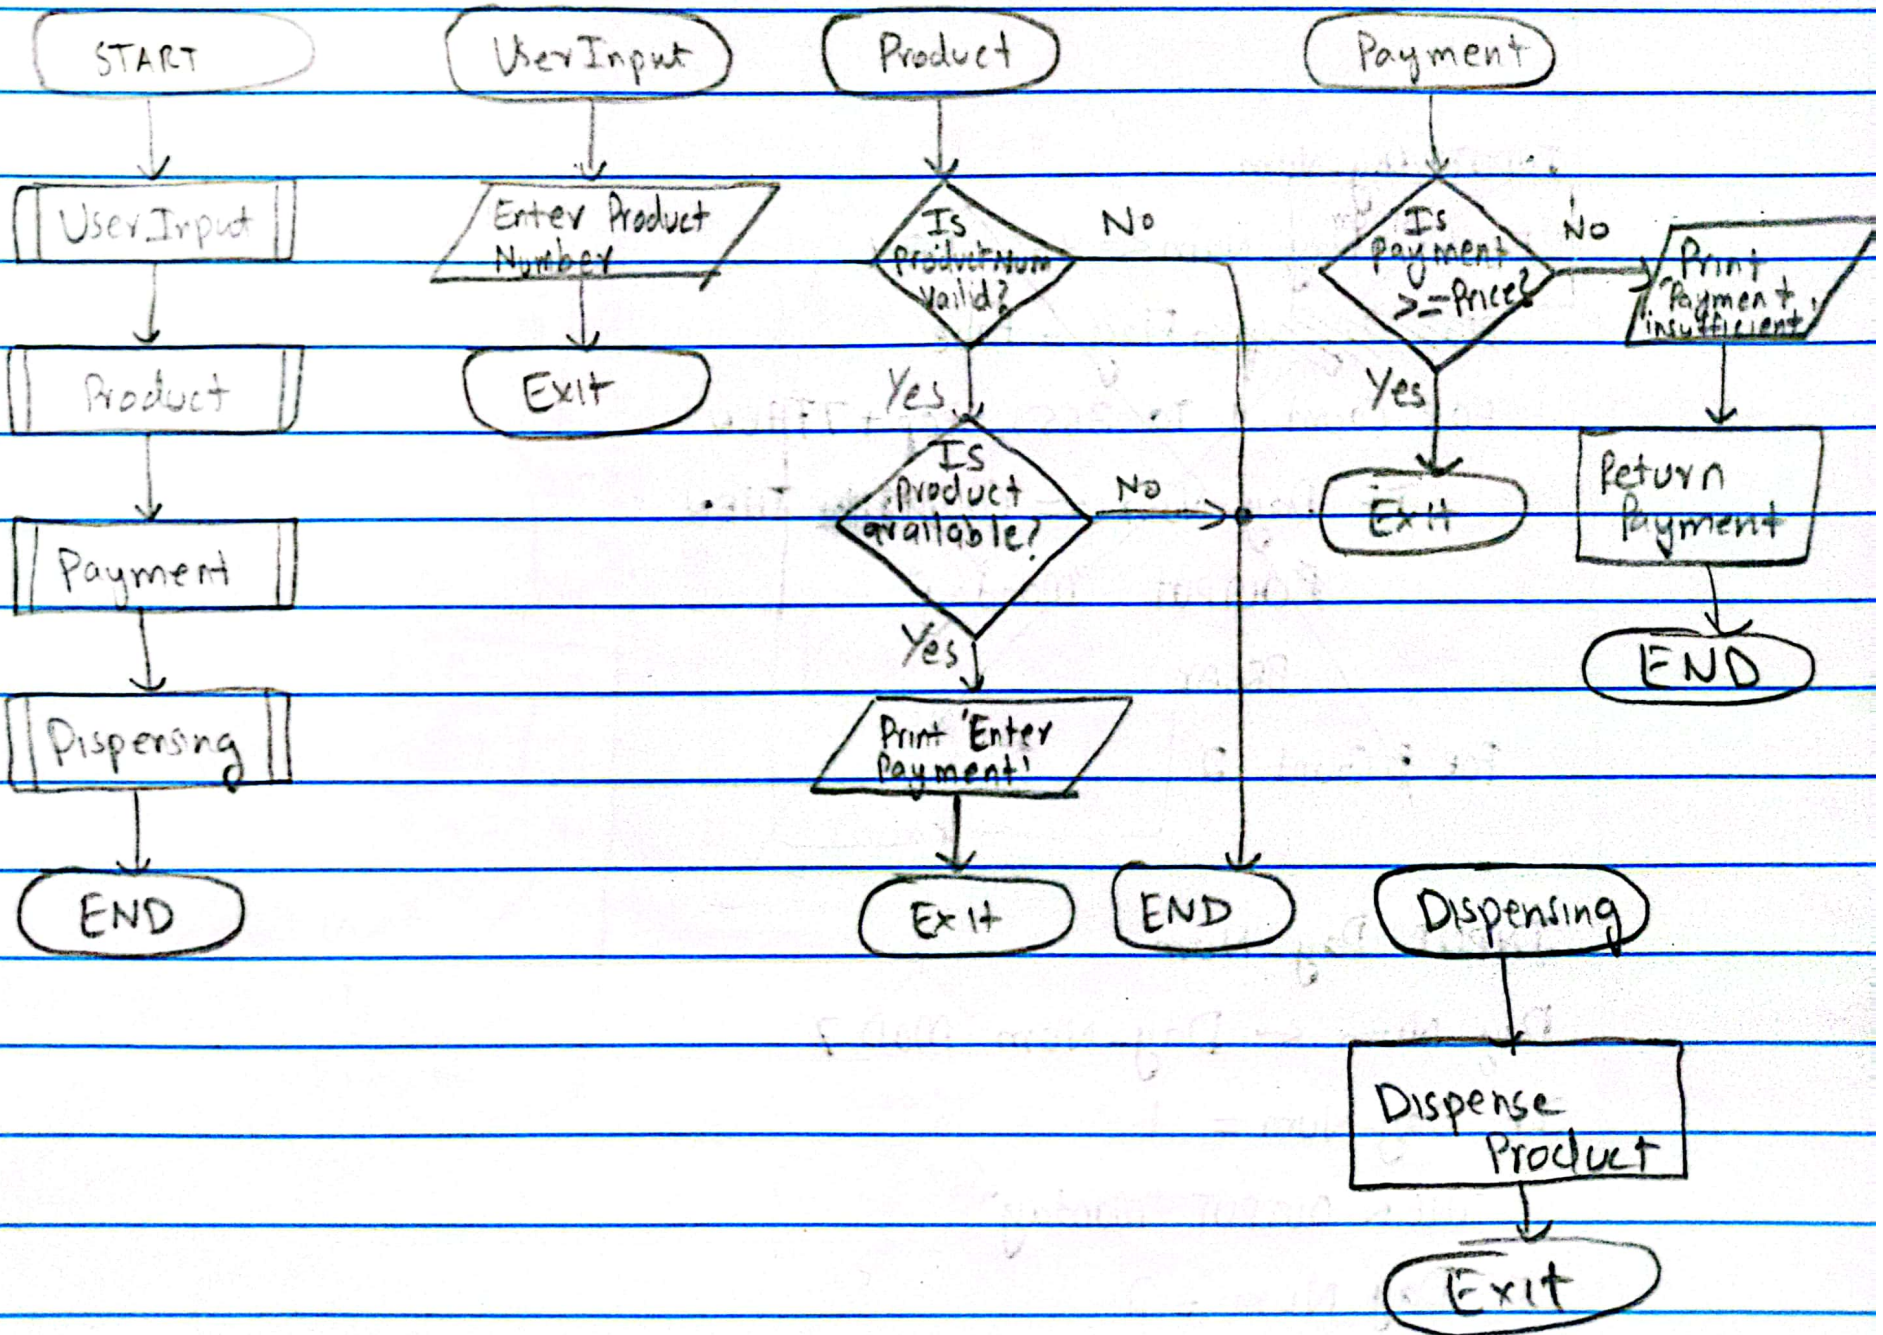 START
UserInput
Product
Payment
Dispensing
END
UserInput
Enter Product
Number
Exit
Product
Is
ProductNum
Valid?
No
Yes
Is
product
available?
No
Yes
Print 'Enter
Payment'
Exit
END
Payment
Is
Payment
>=Price?
No
Yes
Exit
Print
'Payment
insufficient'
Return
Payment
END
Dispensing
Dispense
Product
Exit